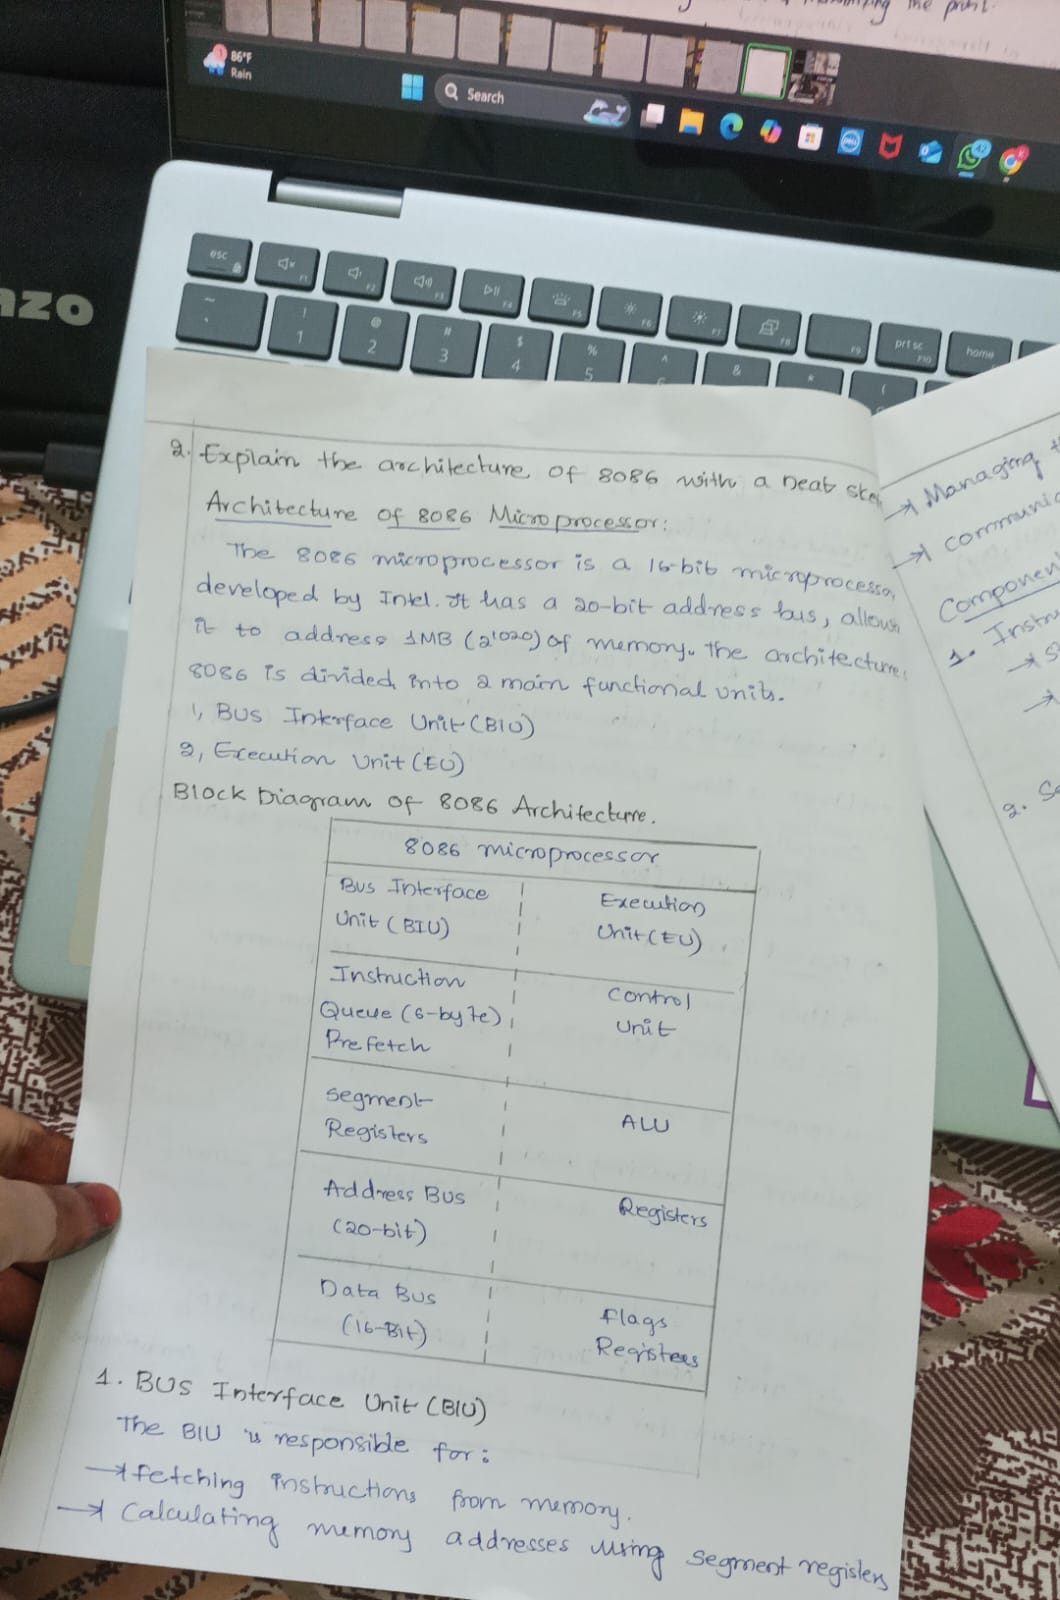 maximizing the profit.
86°F
Rain
Search
azo
esc
F1
F2
F3
F4
F5
F6
F7
F8
F9
prt sc
F10
home
~
!
1
@
2
#
3
$
4
%
5
^
6
&
*
(
2. Explain the architecture of 8086 with a neat sket
Architecture of 8086 Microprocessor:
The 8086 microprocessor is a 16-bit microprocessor
developed by Intel. It has a 20-bit address bus, allows
it to address 1MB (2'020) of memory. the architecture
8086 is divided into 2 main functional units.
1, Bus Interface Unit (BIU)
2, Execution Unit (EU)
Block Diagram of 8086 Architecture.
8086 microprocessor
Bus Interface
Unit (BIU)
Execution
Unit (EU)
Instruction
Queue (6-byte)
Prefetch
Control
Unit
Segment
Registers
ALU
Address Bus
(20-bit)
Registers
Data Bus
(16-Bit)
Flags
Registers
1. BUS Interface Unit (BIU)
The BIU is responsible for:
→ fetching instructions from memory.
→ Calculating memory addresses using segment registers
→ Managing t
→ communic
Componen
1. Instru
→ S
→
2. Se